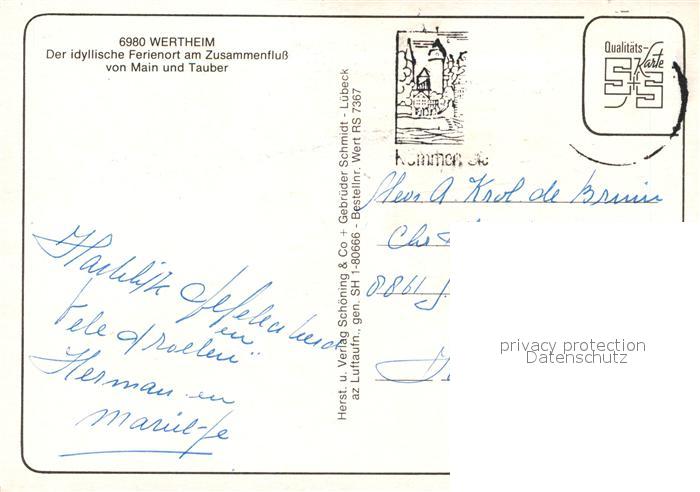 6980 WERTHEIM
Der idyllische Ferienort am Zusammenfluß
von Main und Tauber
Qualitäts-
Karte
S+S
Kommen Sie
Herst. u. Verlag Schöning & Co + Gebrüder Schmidt - Lübeck
az Luftaufn., gen. SH 1-80666 - Bestellnr. Wert RS 7367
A. Krol de Bruin
8861
Hartelijk gefeliciteerd
en
vele groeten
Herman en
privacy protection
Datenschutz